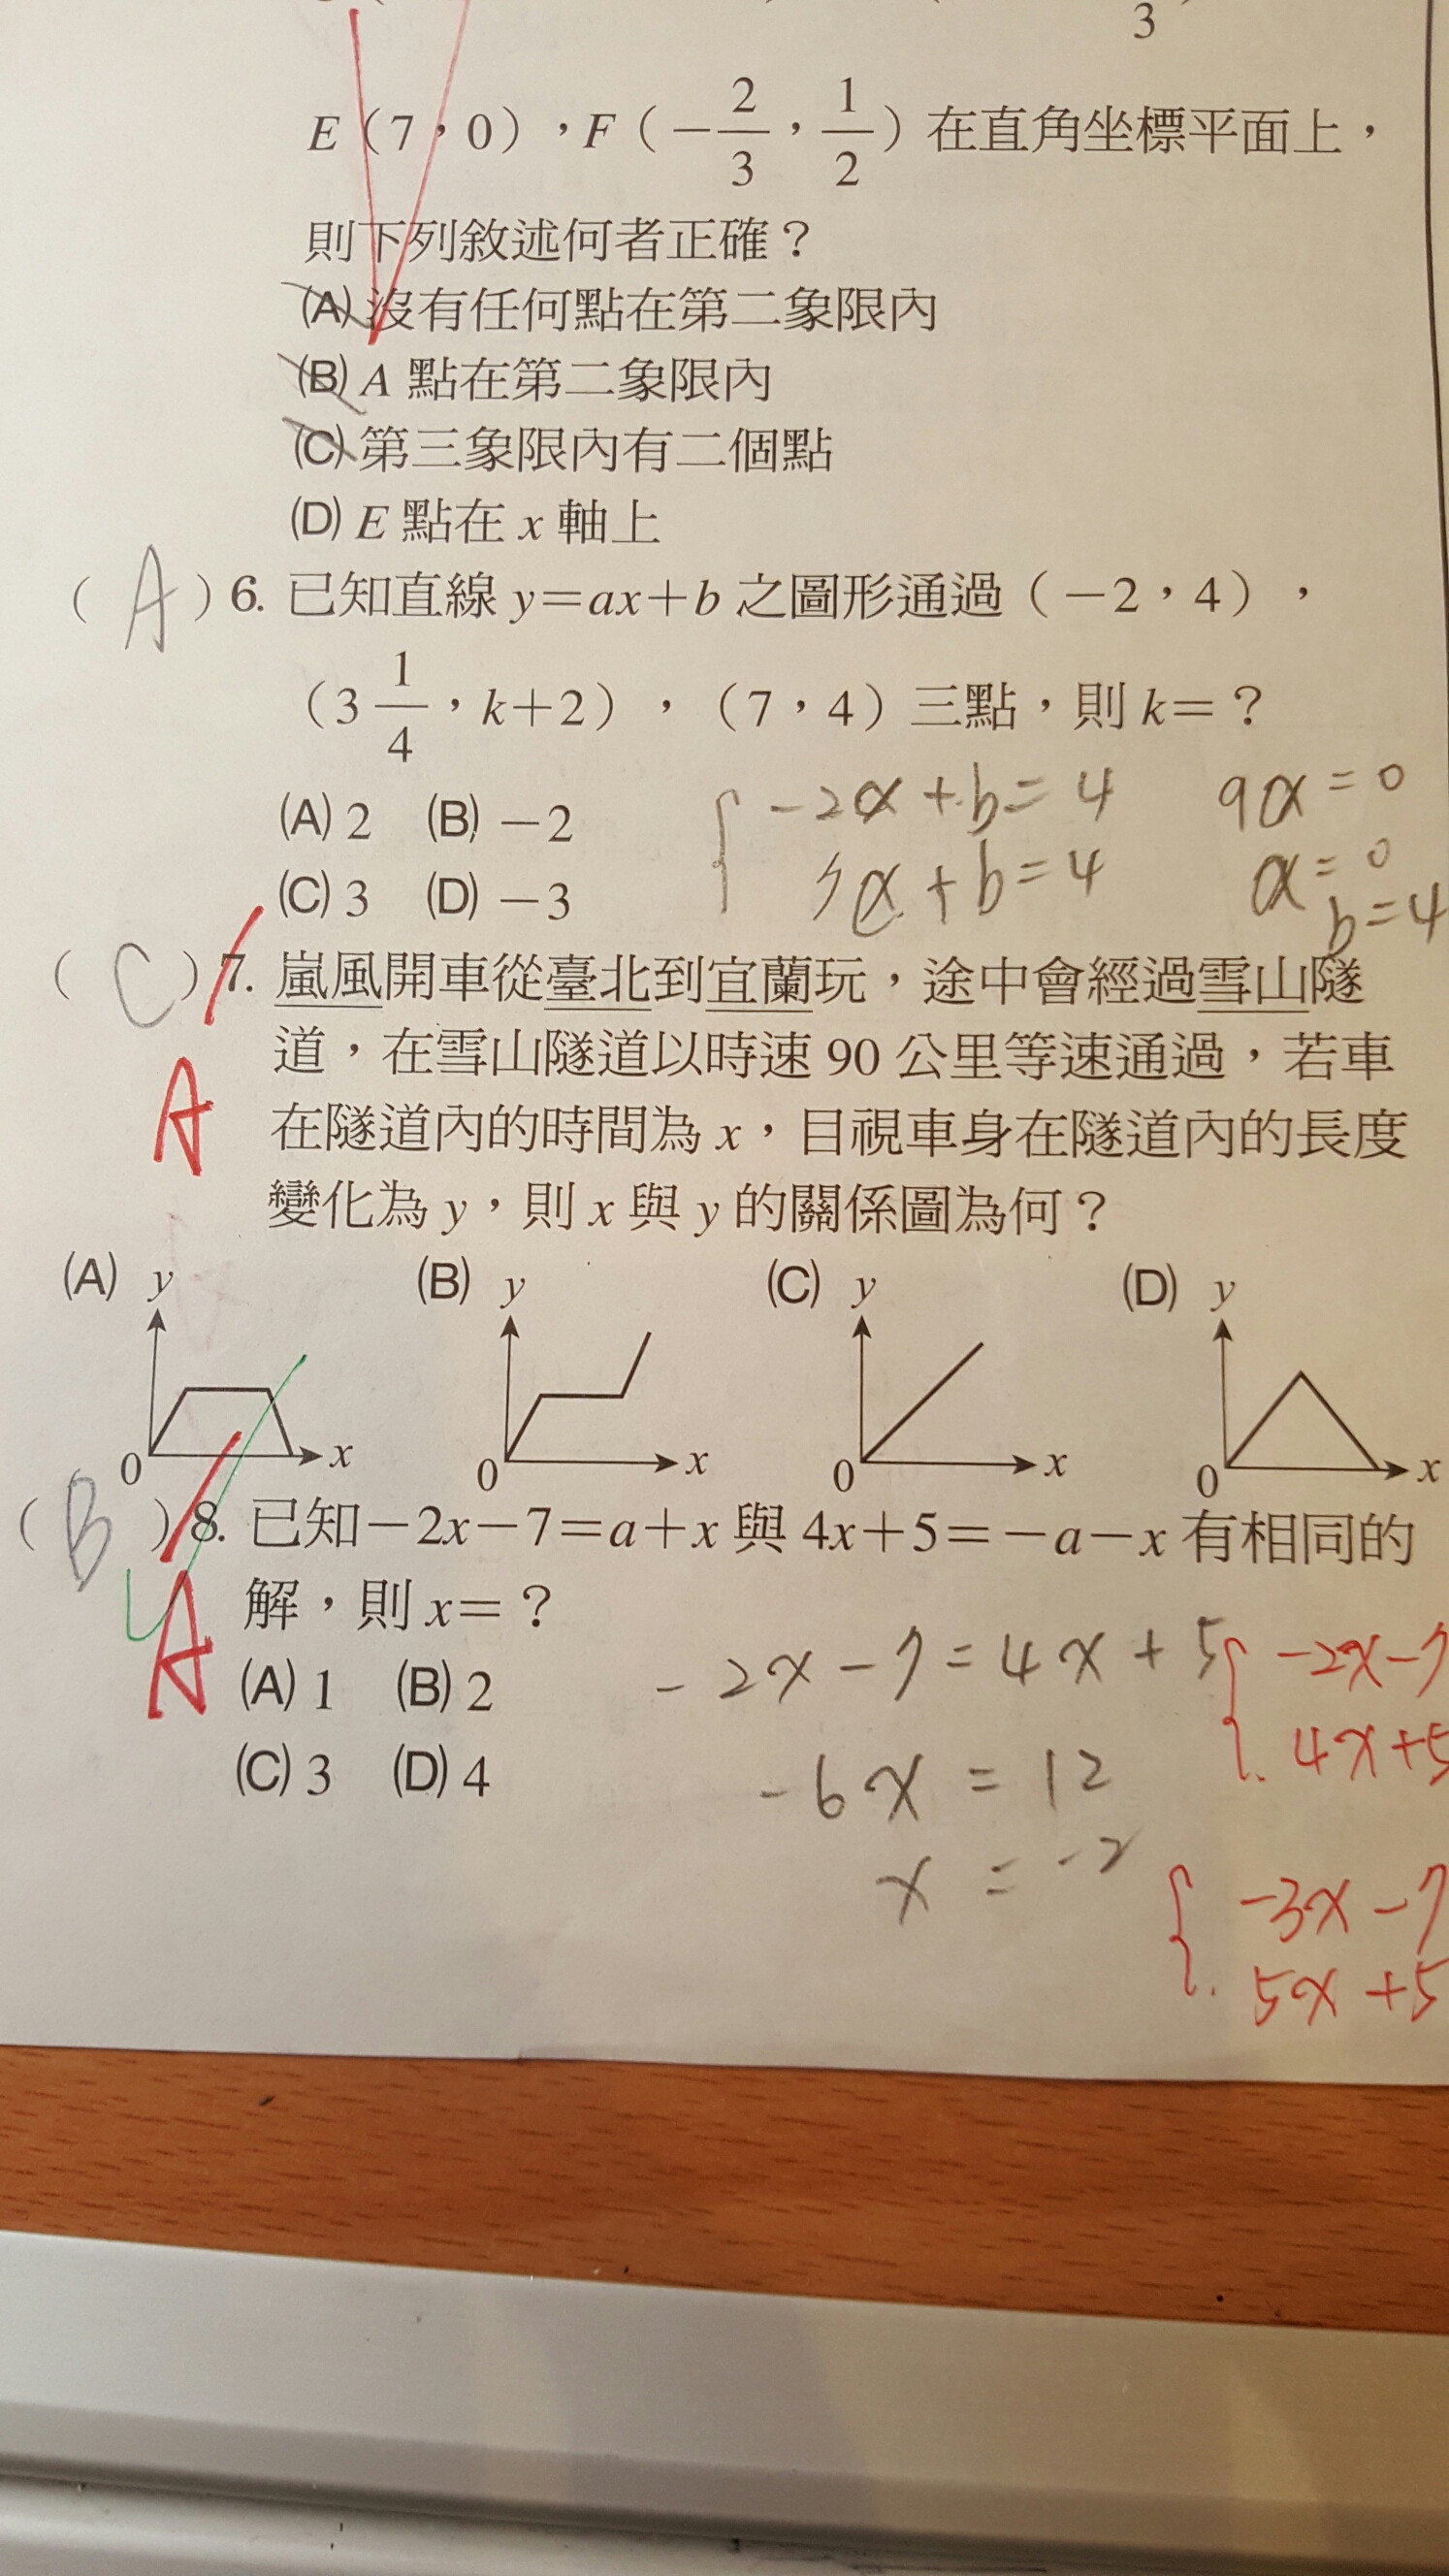 3
E（7，0），F（−2/3，1/2）在直角坐標平面上，
則下列敘述何者正確？
(A) 沒有任何點在第二象限內
(B) A 點在第二象限內
(C) 第三象限內有二個點
(D) E 點在 x 軸上
（ A ）6. 已知直線 y=ax+b 之圖形通過（−2，4），
（3 1/4，k+2），（7，4）三點，則 k=？
(A) 2 (B) −2
(C) 3 (D) −3
-2a+b=4 9a=0
7a+b=4 a=0
b=4
（ C ）7. 嵐風開車從臺北到宜蘭玩，途中會經過雪山隧
道，在雪山隧道以時速 90 公里等速通過，若車
A
在隧道內的時間為 x，目視車身在隧道內的長度
變化為 y，則 x 與 y 的關係圖為何？
(A) y (B) y (C) y (D) y
0 x 0 x 0 x 0 x
（ B ）8. 已知−2x−7=a+x 與 4x+5=−a−x 有相同的
解，則 x=？
A
(A) 1 (B) 2
(C) 3 (D) 4
-2x-7=4x+5
-6x=12
x=-2
-2x-7
4x+5
-3x-7
5x+5